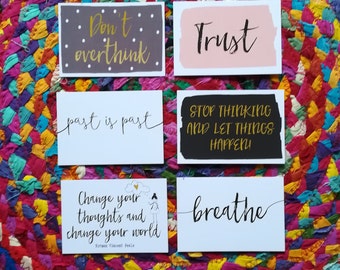 Don't
overthink
Trust
past is past
STOP THINKING
AND LET THINGS
HAPPEN
Change your
thoughts and
change your world
Norman Vincent Peale
breathe